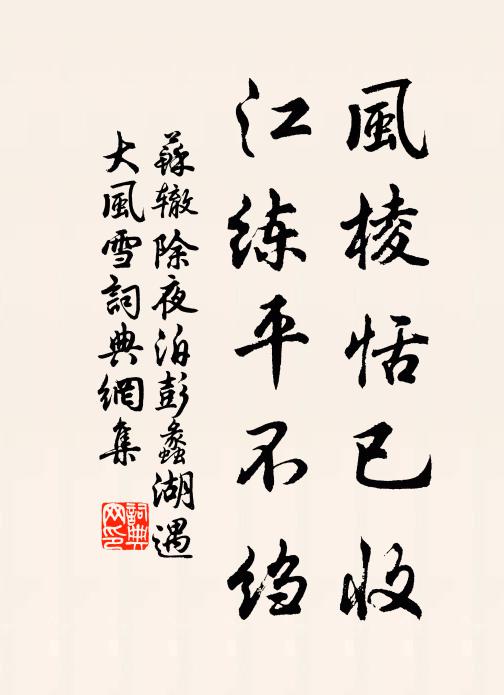 風棱恬已收
江练平不绉
蘇辙除夜泊彭蠡湖遇
大風雪詞典網集
詞典
网印